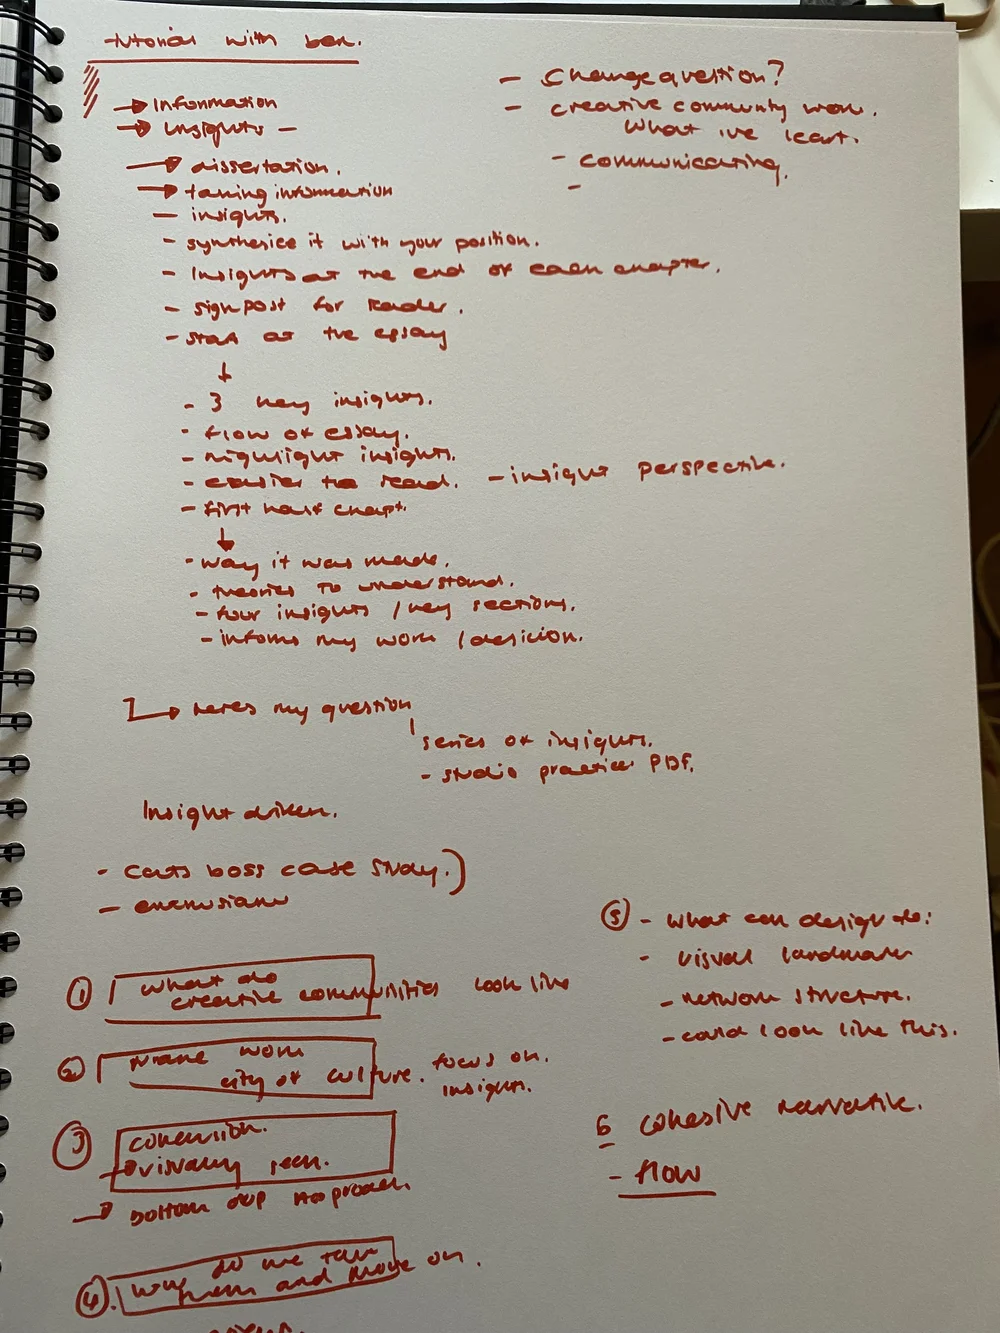 tutorial with ben.
→ Information
→ Insights –
→ dissertation.
→ taking information
– insights.
– synthesise it with your position.
– Insights at the end of each chapter.
– signpost for reader.
– start at the essay
↓
– 3 key insights.
- flow of essay.
– highlight insights.
– easier to read. – insight perspective.
– first half chapt.
↓
- way it was made.
- theories to understand.
– four insights / key sections.
– informs my work / desicion.
– Change question?
– creative community work.
What ive leart.
– communicating.
–
→ heres my question
series of insights.
– studio practice PDF.
Insight driven.
- cats boss case study.)
–
① what do
creative communities look like
② work
city of culture. focus on.
insights.
③
→ visually seen.
→ bottom up approach.
④. do we
them and move on.
⑤ – what can design do:
- visual landmark
– network structure.
– could look like this.
6 cohesive narrative.
– flow